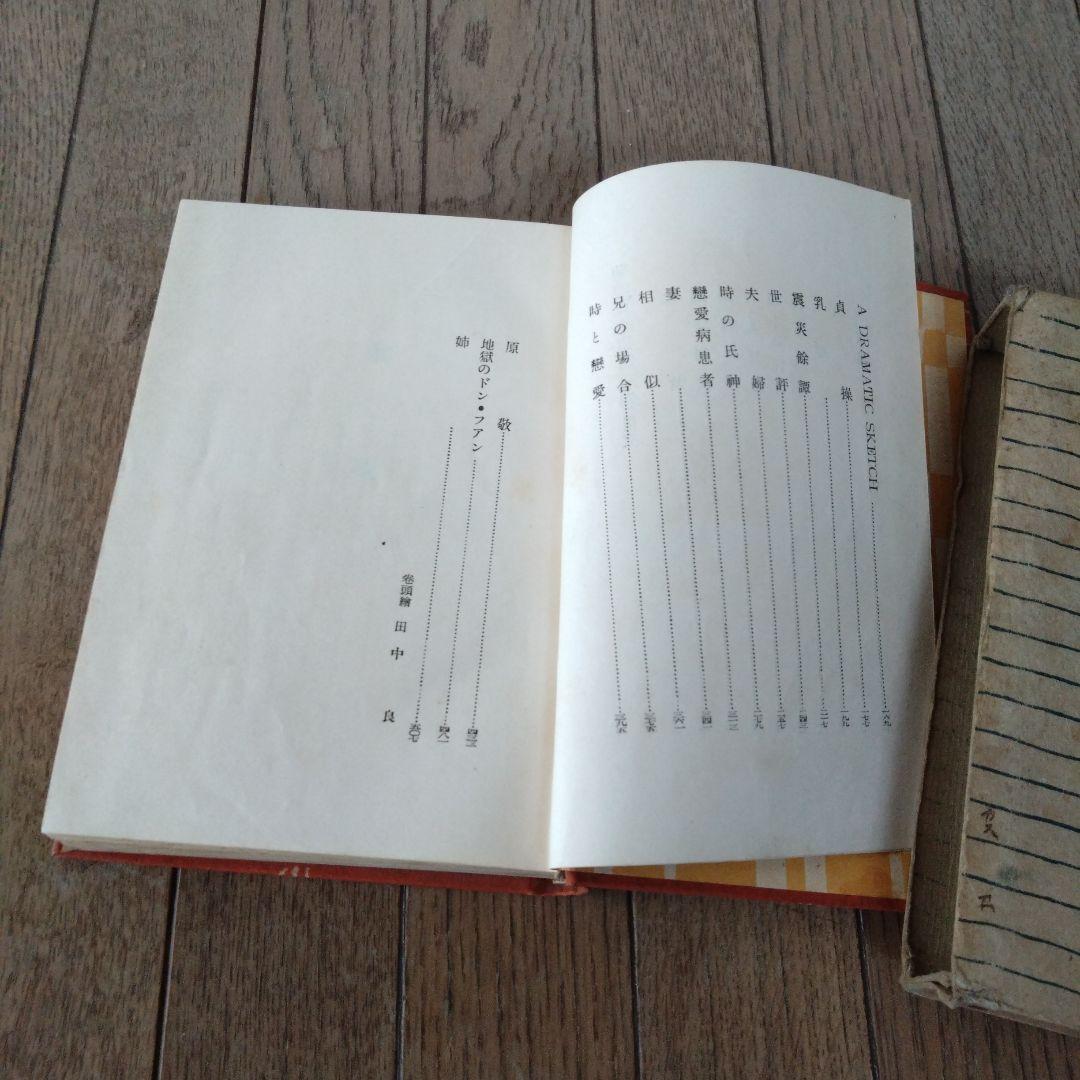 A DRAMATIC SKETCH……一六五
貞操……
乳……一九五
震災餘譚……二一七
世評……二四三
夫婦……二五七
時の氏神……二七九
戀愛病患者……三一三
妻……三四一
相似……三六一
兄の場合……三七五
時と戀愛……三九五
原敬……四二三
地獄のドン・フアン……四八一
姉……五〇七
卷頭繪 田中良